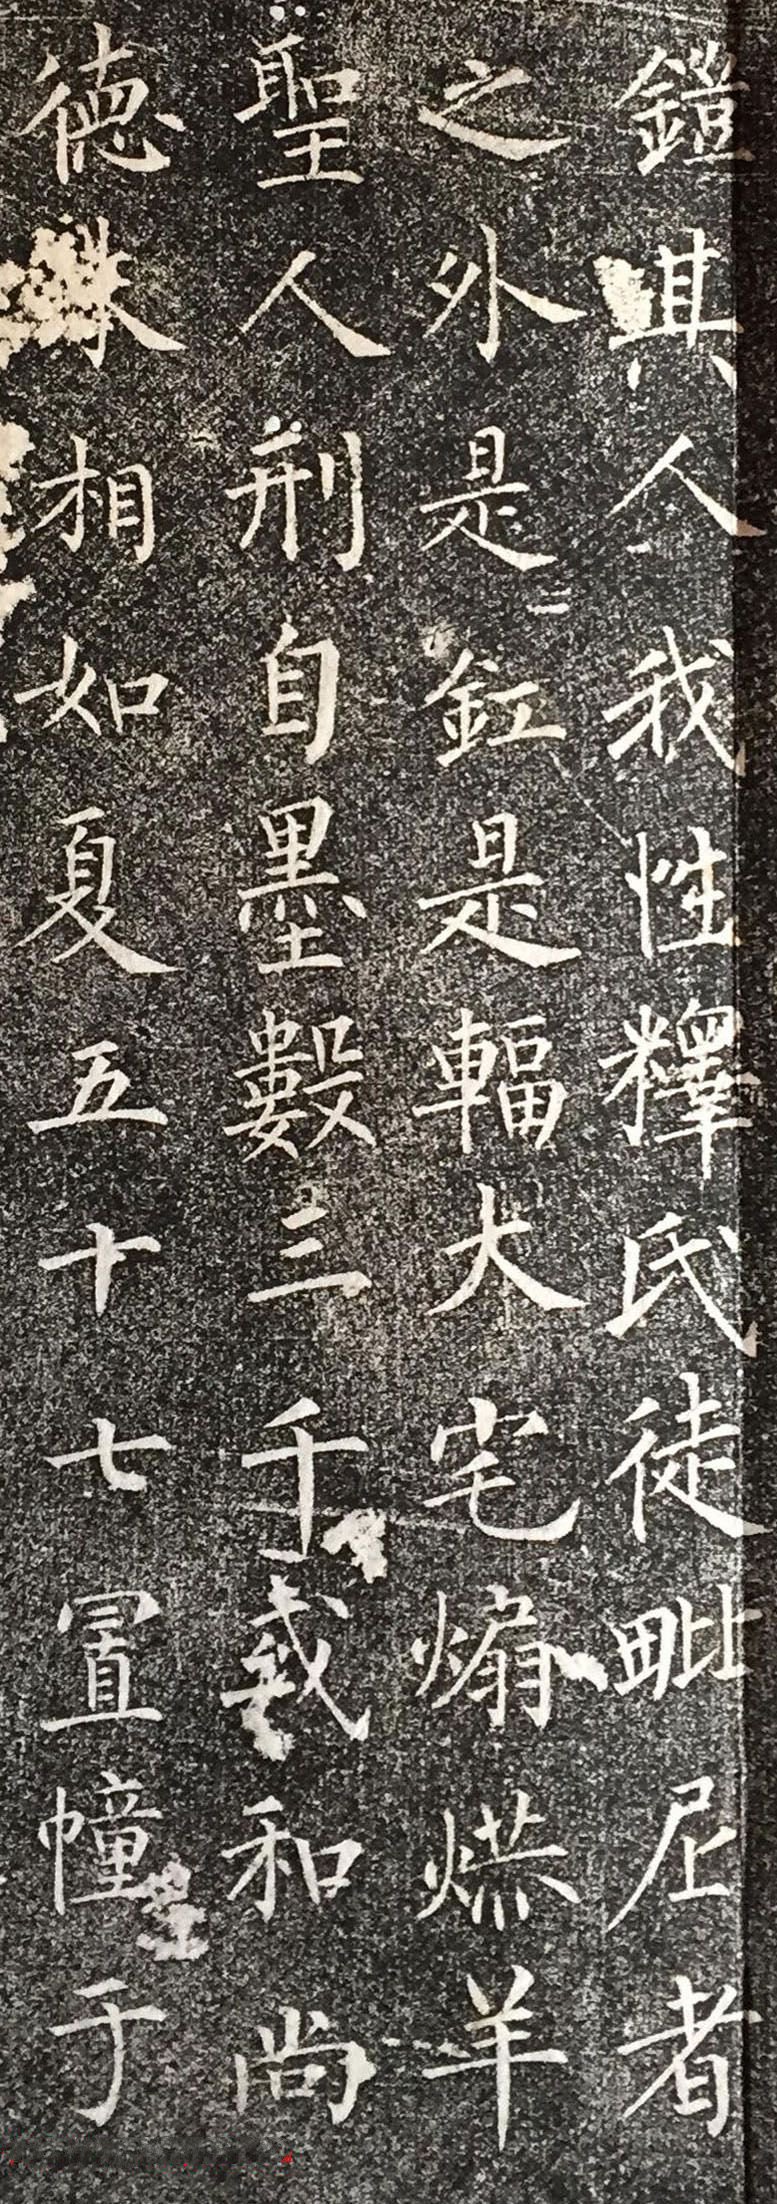 鎧其人我性釋氏徒毗尼者
之外是釭是輻大宅煽㷫羊
聖人刑自墨數三千載和尚
德殊相如夏五十七置幢于